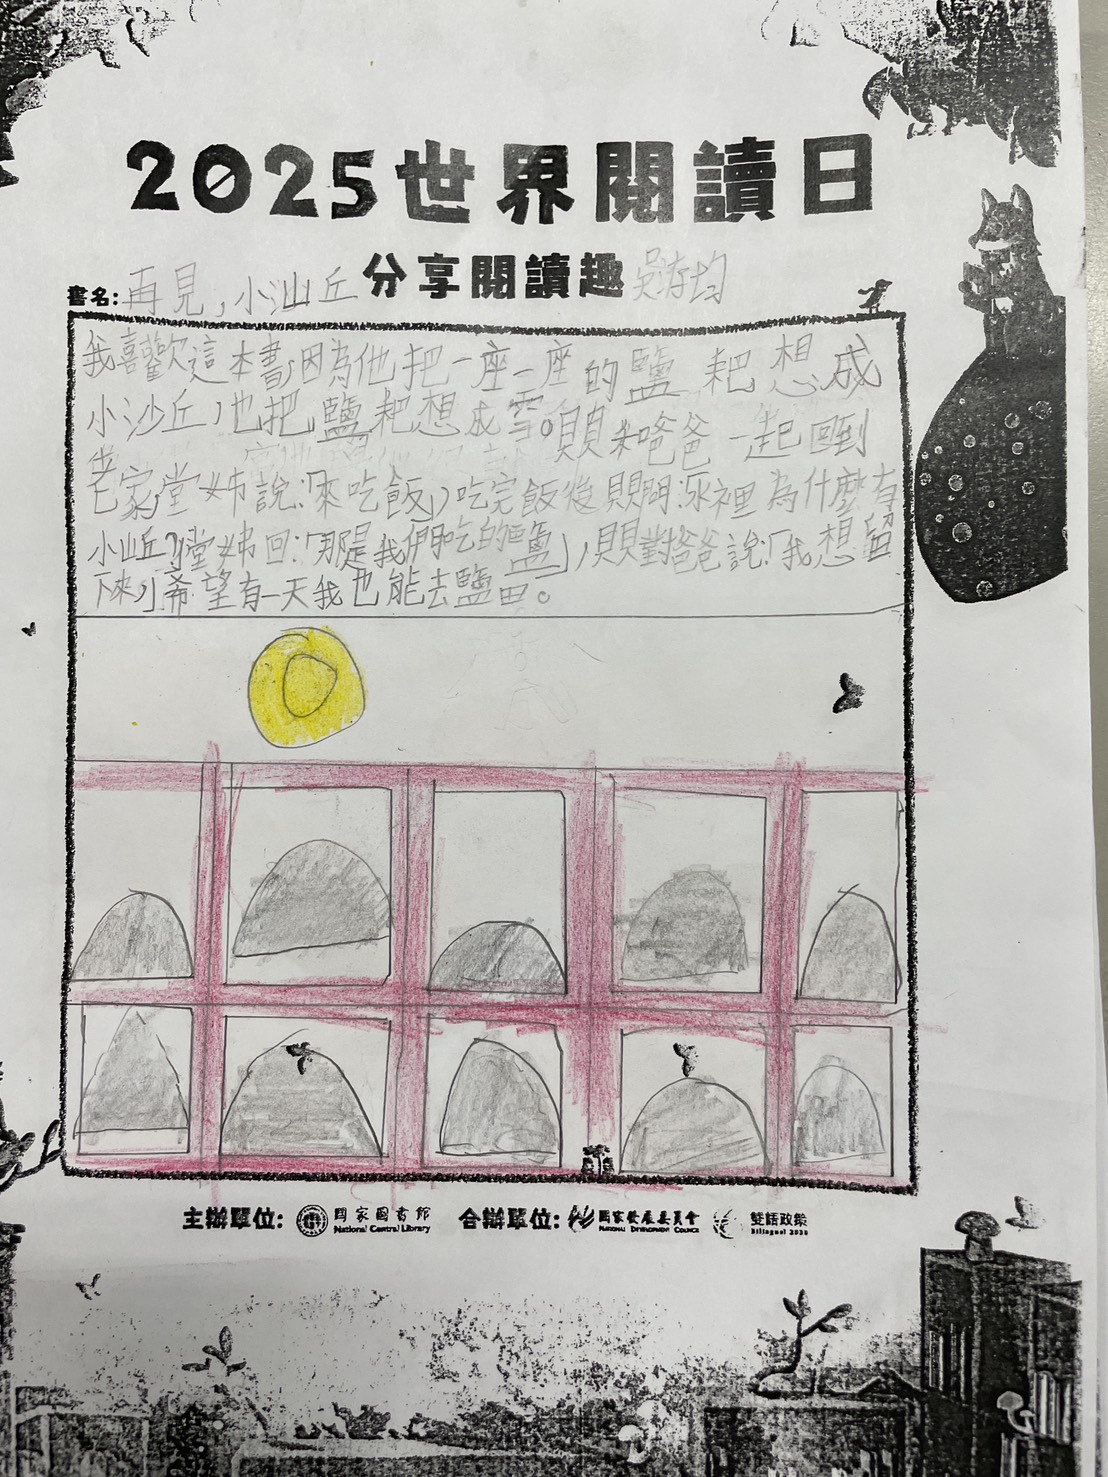 2025世界閱讀日
分享閱讀趣
書名:再見,小山丘
我喜歡這本書,因為他把一座一座的鹽耙想成
小沙丘,也把鹽耙想成雪。貝貝和爸爸一起回到
老家,堂姊說:「來吃飯」,吃完飯後貝貝問:這裡為什麼有
小山丘?堂姊回:「那是我們吃的鹽」,貝貝對爸爸說:「我想留
下來」,希望有一天我也能去鹽田。
主辦單位: 國家圖書館 合辦單位: 國家發展委員會 雙語政策
National Central Library NATIONAL DEVELOPMENT COUNCIL Bilingual 2030